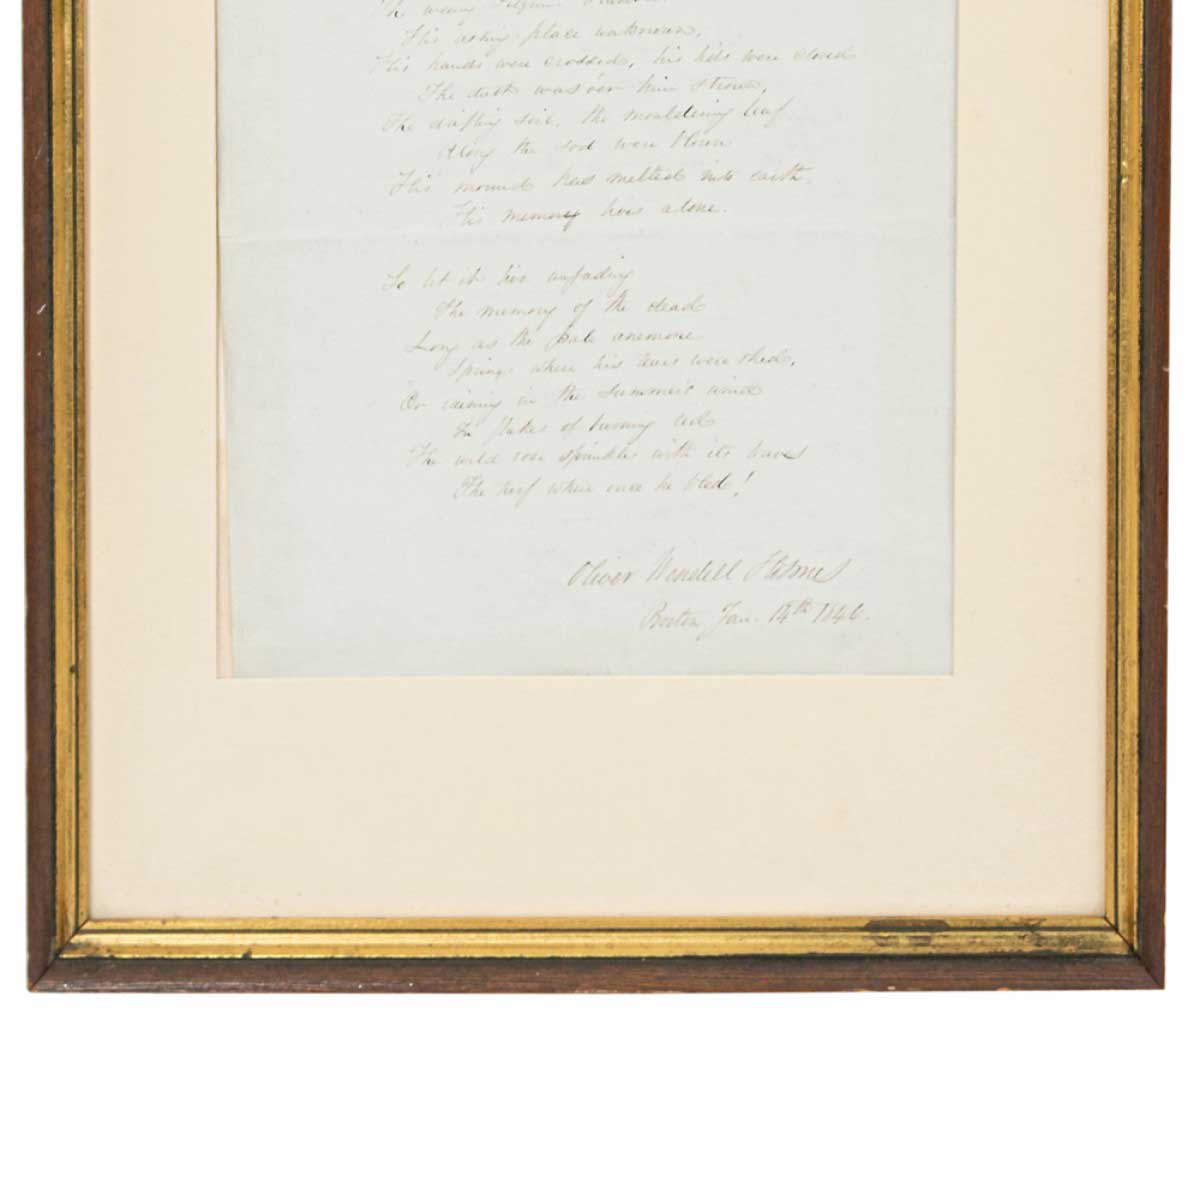 The weary Pilgrim slumbers,
His resting place unknown,
His hands were crossed, his lids were closed
The dust was o'er him strown,
The drifting soil, the mouldering leaf
Along the sod were blown
His mound has melted into earth
His memory lives alone.
So let it live unfading
The memory of the dead
Long as the pale anemone
Springs where his tears were shed,
Or raining in the summer's wind
In flakes of burning red
The wild rose sprinkles with its leaves
The turf where once he bled!
Oliver Wendell Holmes
Boston Jan. 14th 1846.